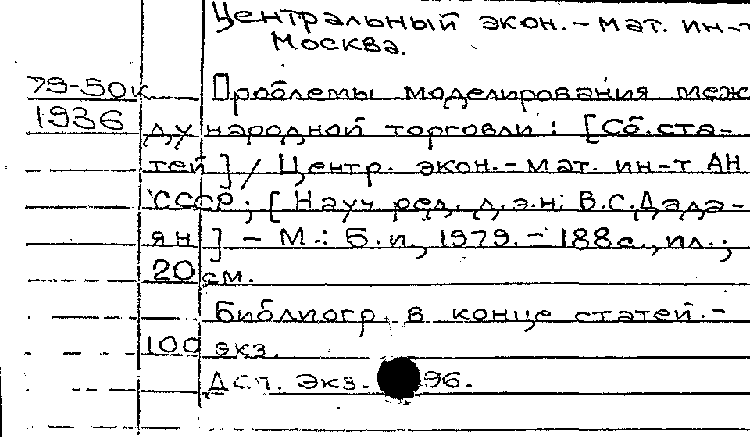 Центральный экон.-мат. ин-т
Москва.
79-50к Проблемы моделирования меж
1936 ду народной торговли: [Сб.ста-
тей] / Центр. экон.-мат. ин-т АН
СССР; [Науч ред. д.э.н. В.С.Дада-
ян] - М.: Б.и, 1979. - 188с., ил.;
20 см.
Библиогр. в конце статей.-
100 экз.
экз. 96.